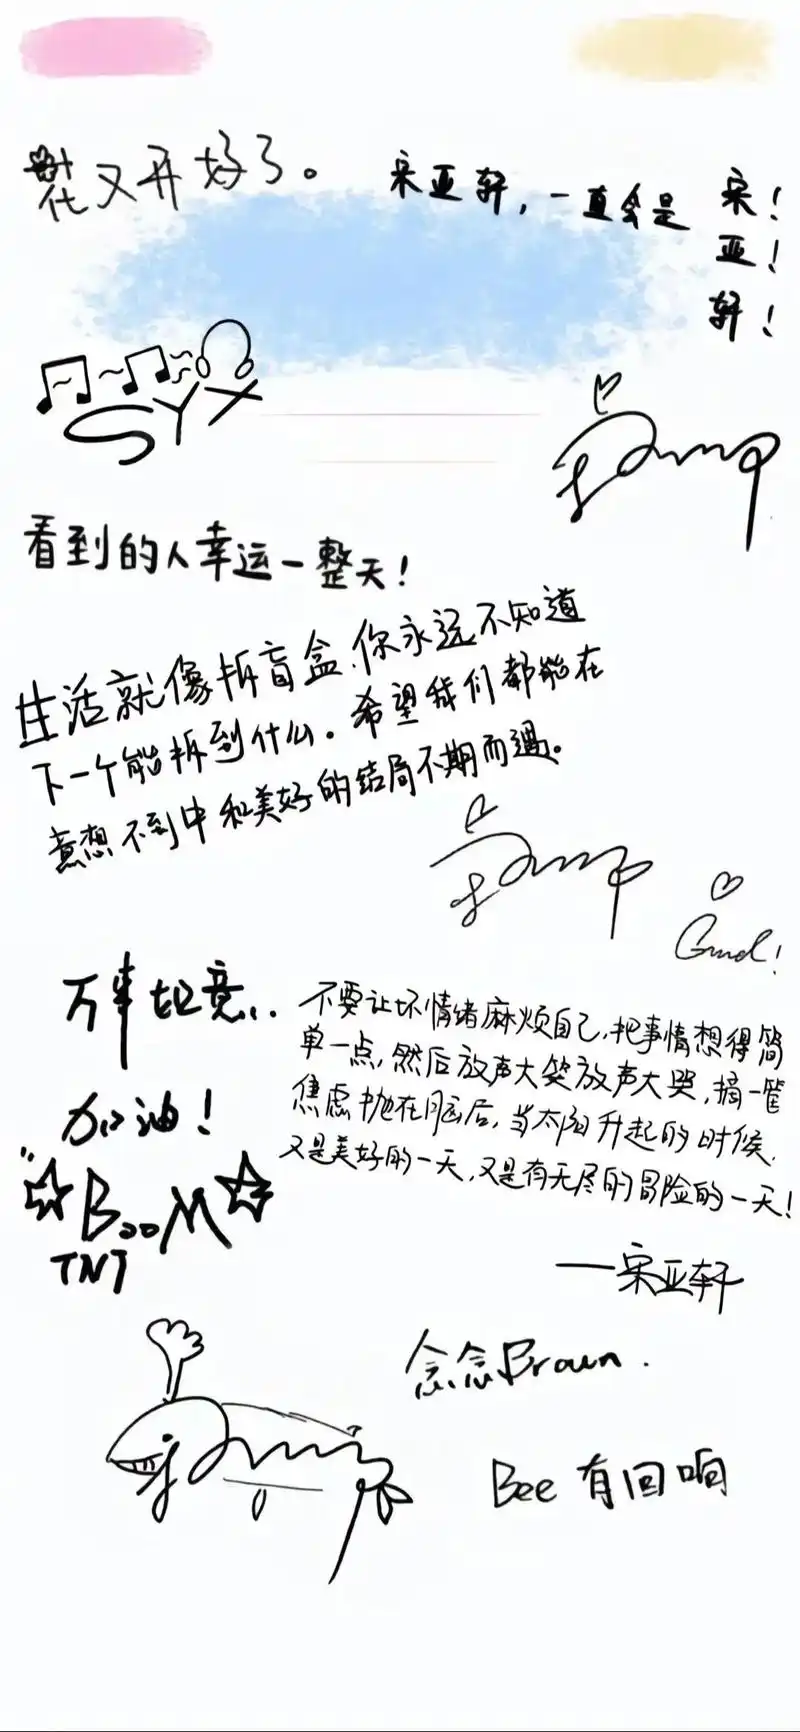 花又开好了。
宋亚轩，一直会是 宋！
亚！
轩！
SYX
看到的人幸运一整天！
生活就像拆盲盒，你永远不知道
下一个能拆到什么。希望我们都能在
意想不到中和美好的结局不期而遇。
万事如意..
加油！
不要让坏情绪麻烦自己，把事情想得简
单一点，然后放声大笑放声大哭，摘一筐
焦虑抛在脑后，当太阳升起的时候，
又是美好的一天，又是有无尽的冒险的一天！
——宋亚轩
"BooM
TNT
念念Brown.
Bee 有回响